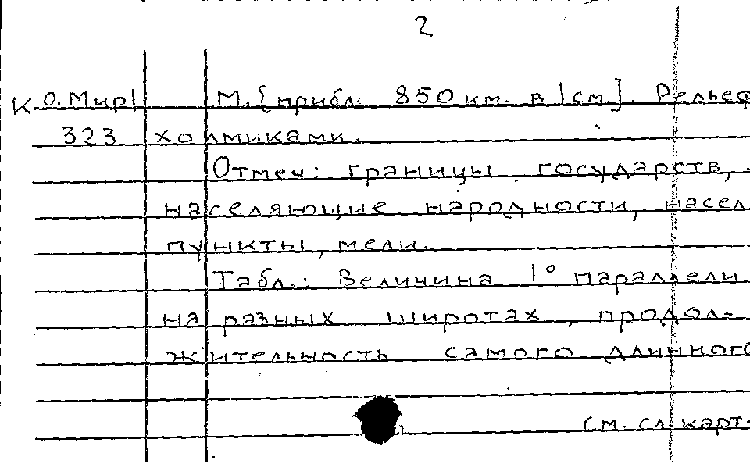 2
К О. Мир| М. [прибл. 850 км. в 1см]. Рельеф
323 холмиками.
Отмеч: границы государств,
населяющие народности, насел
пункты, мели.
Табл.: Величина 1° параллели
на разных широтах, продол-
жительность самого длинного
см. сл. карт.